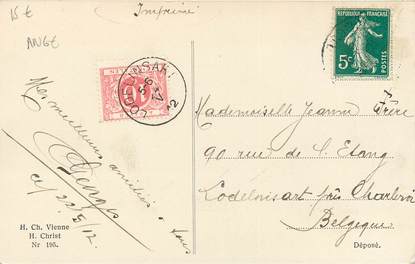 15 €
Imprimé
ANGE
LODELINSART
REPUBLIQUE FRANÇAISE
5c
POSTES
10
Mes meilleures amitiés à tous
22/5/12
Mademoiselle Jeanne Frère
90 rue de l'Etang
Lodelinsart près Charleroi
Belgique
H. Ch. Vienne
H. Christ
Nr 195.
Déposé.